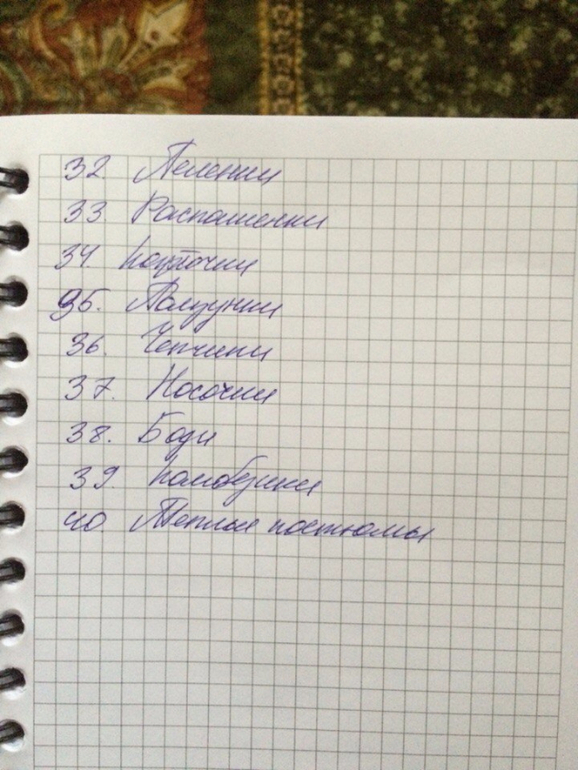 32 Пеленки
33 Распашенки
34. Кофточки
35. Ползунки
36. Чепчики
37. Носочки
38. Боди
39. Комбезики
40 Теплые костюмы